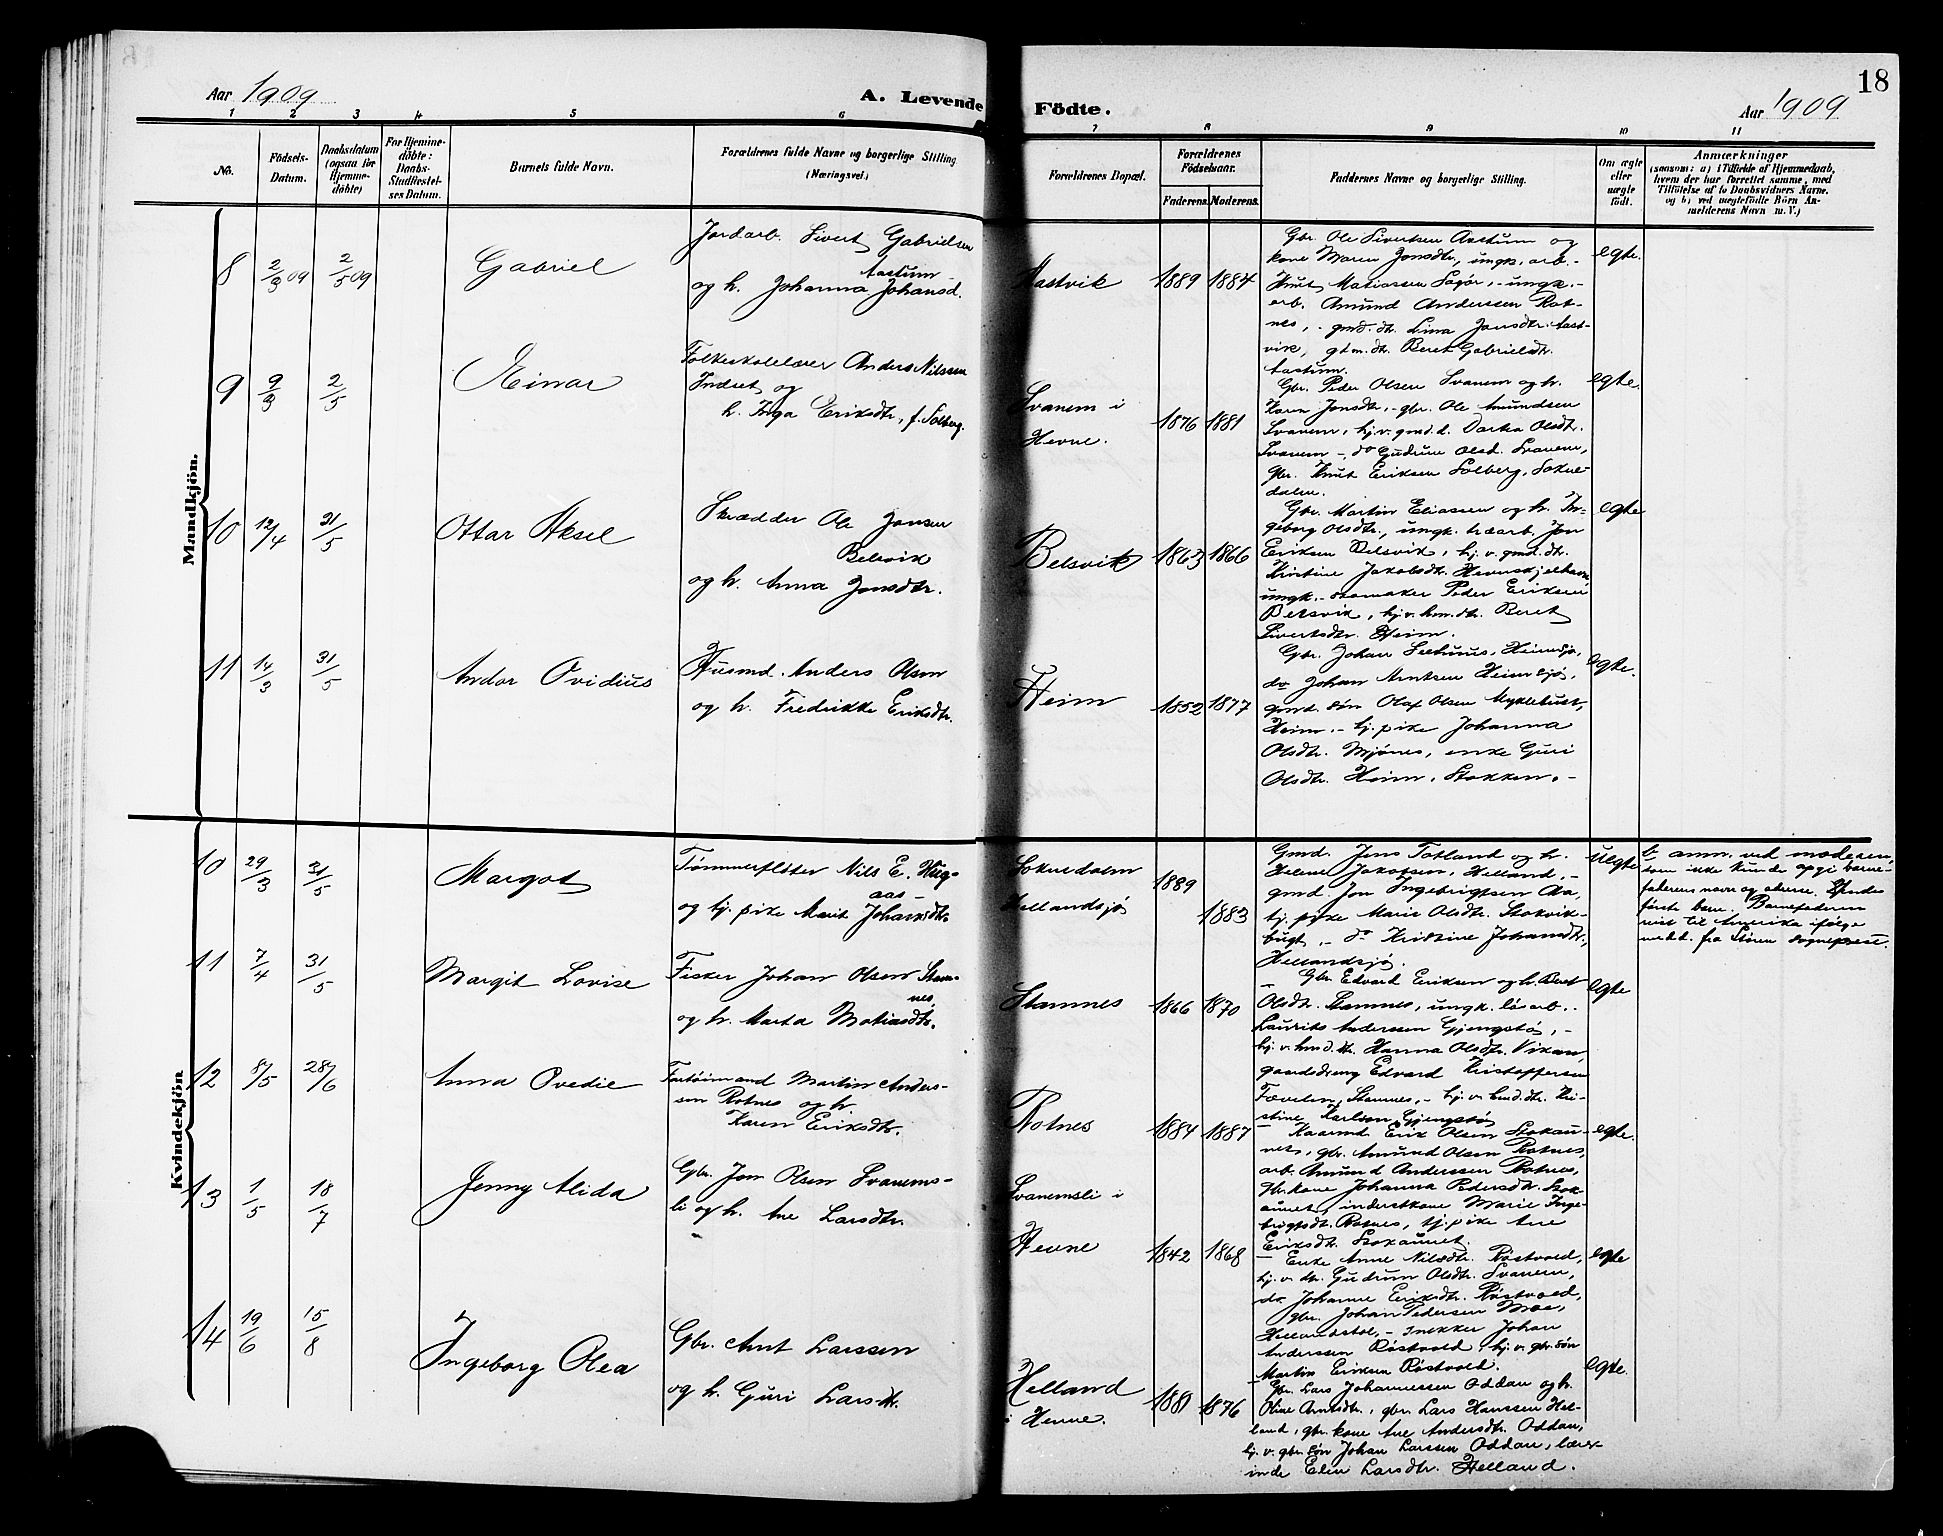 18
Aar 1909
A. Levende Födte.
Aar 1909
1 2 3 4 5 6 7 8 9 10 11
No.
Födsels-Datum.
Daabsdatum (ogsaa for Hjemme-döbte)
For Hjemme-döbte: Daabs-Stadfæstel-ses Datum.
Barnets fulde Navn.
Forældrenes fulde Navne og borgerlige Stilling
(Næringsvei.)
Forældrenes Bopæl.
Forældrenes Födselsaar.
Faderens. Moderens.
Faddernes Navne og borgerlige Stilling.
Om ægte eller uægte födt.
Anmærkninger
(saasom: a) i Tilfælde af Hjemmedaab,
hvem der har forrettet samme, med
Tilföielse af to Daabsvidners Navne.
og b) ved uægtefödte Börn An-
melderens Navn m. V.)
Mandkjön.
8 2/3 09 2/5 09 Gabriel
Jordarb. Sivert Gabrielsen
Aastum
og h. Johanna Johansd.
Aastvik 1889 1884
Gbr. Ole Sivertsen Aastum og
kone Maren Jonsdtr, ungk. arb.
Knut Matiassen Sagør, ungk.
arb. Amund Anderssen Rot-
nes, gmd. dt. Lina Jonsdtr. Aast-
vik, gtm. dt. Beret Gabrielsdt.
Aastum.
egte.
9 9/3 2/5 Einar
Folkeskolelærer Anders Nilssen
Indset og
h. Inga Eriksdtr, f. Solberg.
Svanem i
Hevne.
1876 1881
Gbr. Peder Olsen Svanem og h.
Karen Jonsdtr, gbr. Ole Amundsen
Svanem, hj. v. gmd. d. Dortea Olsdt.
Svanem, do Gudrun Olsd. Svanem,
gbr. Knut Eriksen Solberg, Sokne-
dalen.
egte.
10 12/4 31/5 Ottar Aksel
Skrædder Ole Jonsen
Belsvik
og h. Anna Jonsdtr.
Belsvik 1863 1866
Gbr. Martin Eliassen og h. In-
geborg Olsdtr, ungk. træarb. Jon
Eriksen Belsvik, hj. v. gmd. dt.
Kristine Jakobsdt. Hevneskjelhavn,
ungk. skomaker Peder Eriksen
Belsvik, hj. v. hm. dt. Beret
Sivertsdtr. Heim.
egte
11 14/3 31/5 Andor Ovidius
Husmd. Anders Olsen
og h. Fredrikke Eriksdtr.
Heim 1852 1877
Gbr. Johan Heimsjø,
do Johan Arntsen Heimsjø,
gmd. søn Olaf Olsen Myklebust,
Heim, tj. pike Johanna
Olsdtr. Mjønes, enke Guri
Olsdtr. Heim, Stokken.
egte.
Kvindekjön
10 29/3 31/5 Margot
Tømmerfløter Nils E. Hug-
aas
og tj. pike Marit Johansdtr.
Soknedalen
Hellandsjø
1889
1883
Gmd. Jens Totland og h.
Helene Jakobsen, Helland,
gmd Jon Ingebrigtsen Aa,
tj. pike Marie Olsdtr. Stokvik-
bugt, do Kristine Johansdtr.
Hellandsjø.
uegte
b. anm. ved moderen,
som ikke kunde opgi barne-
faderens navn og adresse. Hendes
første barn. Barnefaderen
reist til Amerika ifølge
medd. fra Støren sogneprest.
11 7/4 31/5 Margit Lovise
Fisker Johan Olsen Stam-
nes,
og h. Marta Matiasdtr.
Stamnes 1866 1870
Gbr. Edvard Eriksen og h. Beret
Olsdtr. Stamnes, ungk. løsarb.
Laurits Anderssen Gjengstø,
hj. v. hmd. dt. Hanna Olsdtr. Vikan,
gaardsdreng Edvard Kristoffersen
Fævelen, Stamnes, hj. v. hmd. dt. Kri-
stine Karlsen Gjengstø
egte
12 8/5 28/6 Anna Ovedie
Fartøimand Martin Anders-
sen Rotnes og h.
Karen Eriksdtr.
Rotnes 1884 1887
Kaarmd. Erik Olsen Stokau-
net, gbr. Amund Olsen Rotnes,
arb. Amund Anderssen Rotnes,
kone Johanna Pedersdtr. Stok-
aunet, inderstkone Marie Inge-
brigtsdt. Rotnes, tj. pike Ane
Eriksdtr. Stokaunet.
egte.
13 1/5 18/7 Jenny Alida
Gbr. Jon Olsen Svanems-
li og h. Ane Larsdtr.
Svanemsli i
Hevne
1842 1868
Enke Anne Nilsdtr. Røstvold,
hj. v. dtr. Gudrun Olsdtr. Svanem,
do Johanne Eriksdtr. Røstvold,
gbr. Johan Pedersen Moe,
snekker Johan
Anderssen Røstvold, hj. v. gbr. søn
Martin Eriksen Røstvold.
egte
14 19/6 15/8 Ingeborg Olea
Gbr. Arnt Larssen
og h. Guri Larsdtr.
Helland
i Hevne.
1881 1876
Gbr. Lars Johannessen Oddan og h.
Oline Arntsdtr., gbr. Lars Hanssen Hel-
land, gbr. kone Ane Andersdtr. Oddan,
hj. v. gbr. søn Johan Larssen Oddan, lærer-
inde Elen Larsdtr. Helland.
egte.